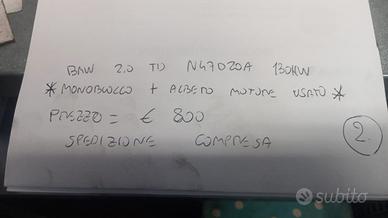 BMW 2.0 TD N47D20A 130KW
* MONOBLOCCO + ALBERO MOTORE USATO *
PREZZO = € 800
SPEDIZIONE COMPRESA
2.
subito